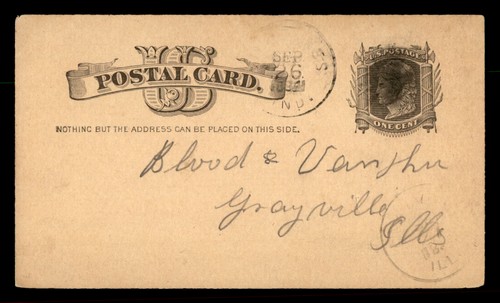 US
POSTAL CARD.
U.S. POSTAGE
ONE CENT
SEP
26
NOTHING BUT THE ADDRESS CAN BE PLACED ON THIS SIDE.
Blood &
Grayville
Ills